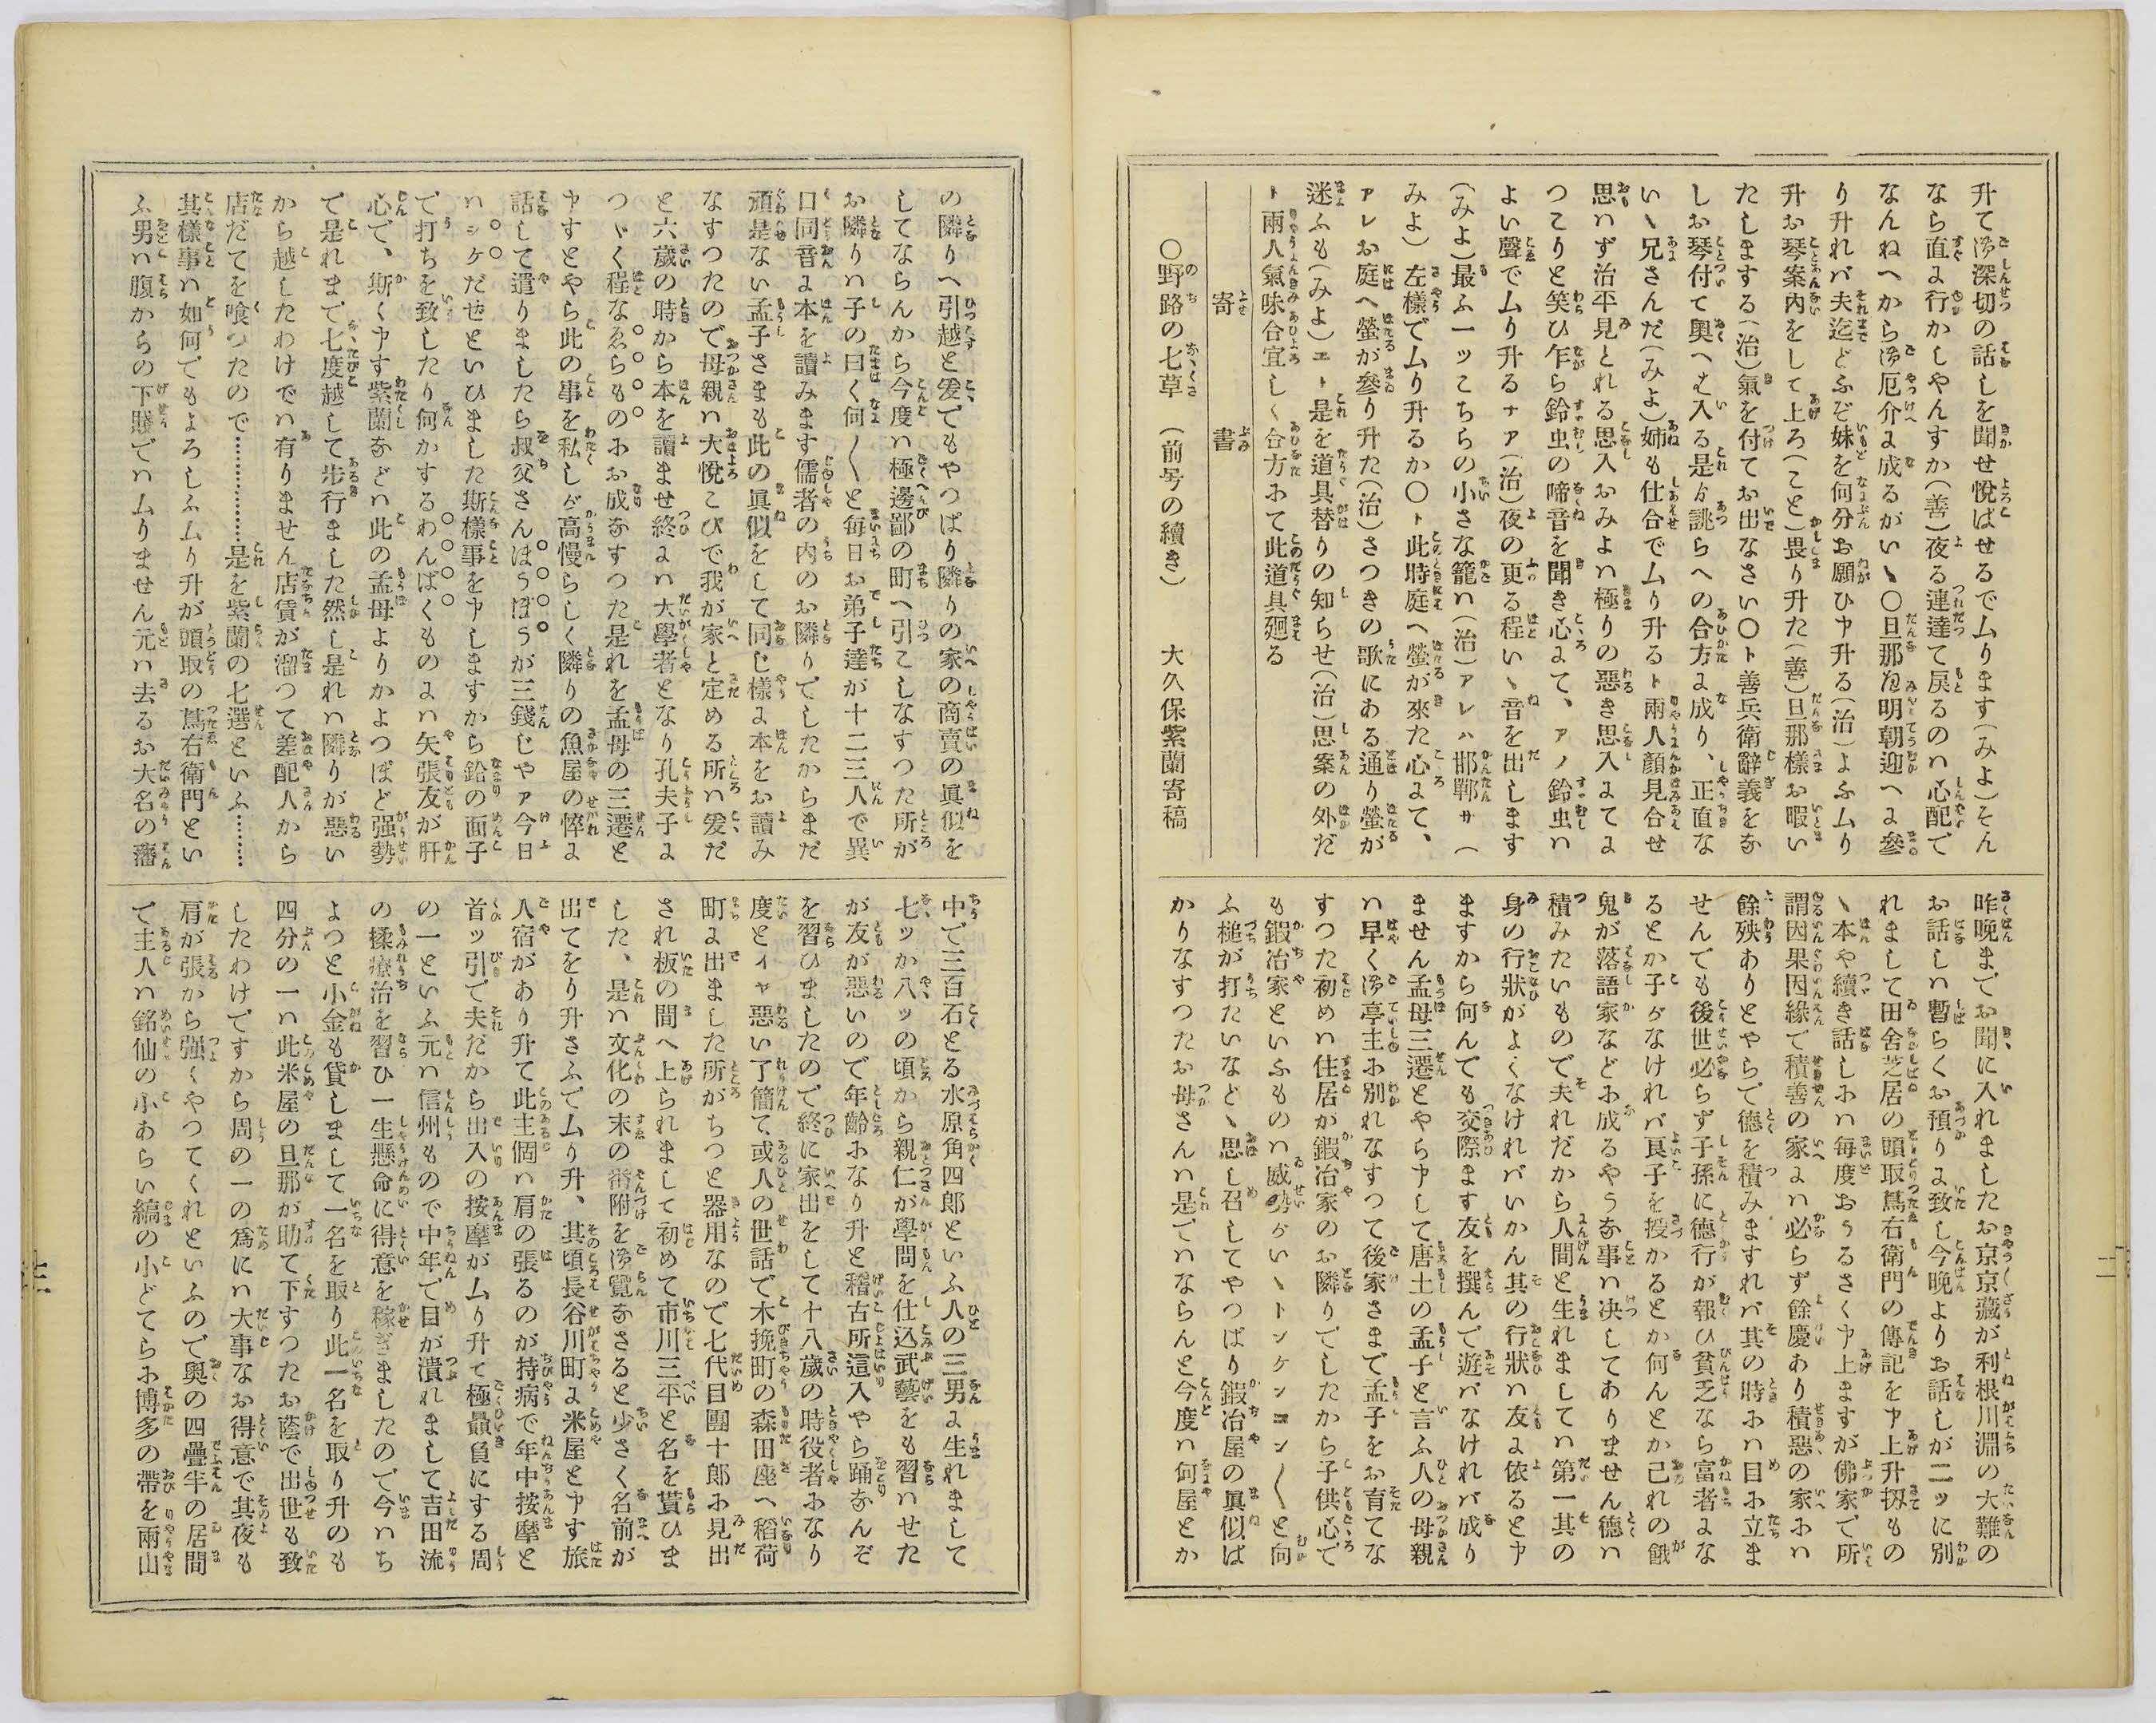 升て御深切の話しを聞せ悅ばせるでムります(みよ)そん
なら直に行かしやんすか(善)夜る連達て戻るのハ心配で
なんねへから御厄介に成るがいゝ〇旦那も明朝迎へに參
り升れバ夫迄どふぞ妹を何分お願ひ申升る(治)よふムり
升お琴案內をして上ろ(こと)畏り升た(善)旦那樣お暇い
たしまする(治)氣を付てお出なさい〇ト善兵衛辭義をな
しお琴付て奧へ這入る是ゟ誂らへの合方に成り、正直な
いゝ兄さんだ(みよ)姉も仕合でムり升るト兩人顏見合せ
思ハず治平見とれる思入おみよハ極りの惡き思入にてに
つこりと笑ひ乍ら鈴虫の啼音を聞き心にて、アノ鈴虫ハ
よい聲でムり升るナア(治)夜の更る程いゝ音を出します
(みよ)最ふ一ッこちらの小さな籠ハ(治)アレハ邯鄲サ(
みよ)左樣でムり升るか〇ト此時庭へ螢が來た心にて、
アレお庭へ螢が參り升た(治)さつきの歌にある通り螢が
迷ふも(みよ)エト是を道具替りの知らせ(治)思案の外だ
ト兩人氣味合宜しく合方にて此道具廻る
寄書
〇野路の七草 (前号の續き) 大久保紫蘭寄稿
昨晚までお聞に入れましたお京京藏が利根川淵の大難の
お話しハ暫らくお預りに致し今晚よりお話しが二ッに別
れまして田舍芝居の頭取蔦右衛門の傳記を申上升扨もの
ゝ本や續き話しにハ每度おうるさく申上ますが佛家で所
謂因果因緣で積善の家にハ必らず餘慶あり積惡の家にハ
餘殃ありとやらで德を積みますれバ其の時にハ目に立ま
せんでも後世必らず子孫に德行が報ひ貧乏なら富者にな
るとか子がなけれバ良子を授かるとか何んとか己れの餓
鬼が落語家などに成るやうな事ハ决してありません德ハ
積みたいもので夫れだから人間と生れましてハ第一其の
身の行狀がよくなけれバいかん其の行狀ハ友に依ると申
ますから何んでも交際ます友を撰んで遊バなけれバ成り
ません孟母三遷とやら申して唐土の孟子と言ふ人の母親
ハ早く御亭主に別れなすつて後家さまで孟子をお育てな
すつた初めハ住居が鍜冶家のお隣りでしたから子供心で
も鍜冶家といふものハ威勢がいゝトンケンコン〱と向
ふ槌が打たいなどゝ思し召してやつぱり鍜冶屋の眞似ば
かりなすつたお母さんハ是でハならんと今度ハ何屋とか
の隣りへ引越と爰でもやつぱり隣りの家の商賣の眞似を
してならんから今度ハ極邊鄙の町へ引こしなすつた所が
お隣りハ子の曰く何〱と每日お弟子達が十二三人で異
口同音に本を讀みます儒者の內のお隣りでしたからまだ
頑是ない孟子さまも此の眞似をして同じ樣に本をお讀み
なすつたので母親ハ大悅こびで我が家と定める所ハ爰だ
と六歲の時から本を讀ませ終にハ大學者となり孔夫子に
つゞく程なゑらものにお成なすつた是れを孟母の三遷と
申すとやら此の事を私しが高慢らしく隣りの魚屋の悴に
話して遣りましたら叔父さんはうぼうが三錢じやア今日
ハシケだぜといひました斯樣事を申しますから鉛の面子
で打ちを致したり何かするわんぱくものにハ矢張友が肝
心で、斯く申す紫蘭などハ此の孟母よりかよつぽど强勢
で是れまで七度越して步行ました然し是れハ隣りが惡い
から越したわけでハ有りません店賃が溜つて差配人から
店だてを喰つたので………………是を紫蘭の七遷といふ………
其樣事ハ如何でもよろしふムり升が頭取の蔦右衛門とい
ふ男ハ腹からの下賤でハムりません元ハ去るお大名の藩
中で三百石とる水原角四郎といふ人の三男に生れまして
七ッか八ッの頃から親仁が學問を仕込武藝をも習ハせた
が友が惡いので年齡になり升と稽古所這入やら踊なんぞ
を習ひましたので終に家出をして十八歲の時役者になり
度とイヤ惡い了簡て或人の世話で木挽町の森田座へ稻荷
町に出ました所がちつと器用なので七代目團十郎に見出
され板の間へ上られまして初めて市川三平と名を貰ひま
した、是ハ文化の末の番附を御覽なさると少さく名前が
出てをり升さふでムり升、其頃長谷川町に米屋と申す旅
人宿があり升て此主個ハ肩の張るのが持病で年中按摩と
首ッ引で夫だから出入の按摩がムり升て極贔負にする周
の一といふ元ハ信州もので中年で目が潰れまして吉田流
の揉療治を習ひ一生懸命に得意を稼ぎましたので今ハち
よつと小金も貸しまして一名を取り此一名を取り升のも
四分の一ハ此米屋の旦那が助て下すつたお蔭で出世も致
したわけですから周の一の爲にハ大事なお得意で其夜も
肩が張から强くやつてくれといふので奧の四疊半の居間
で主人ハ銘仙の小あらい縞の小どてらに博多の帶を兩山